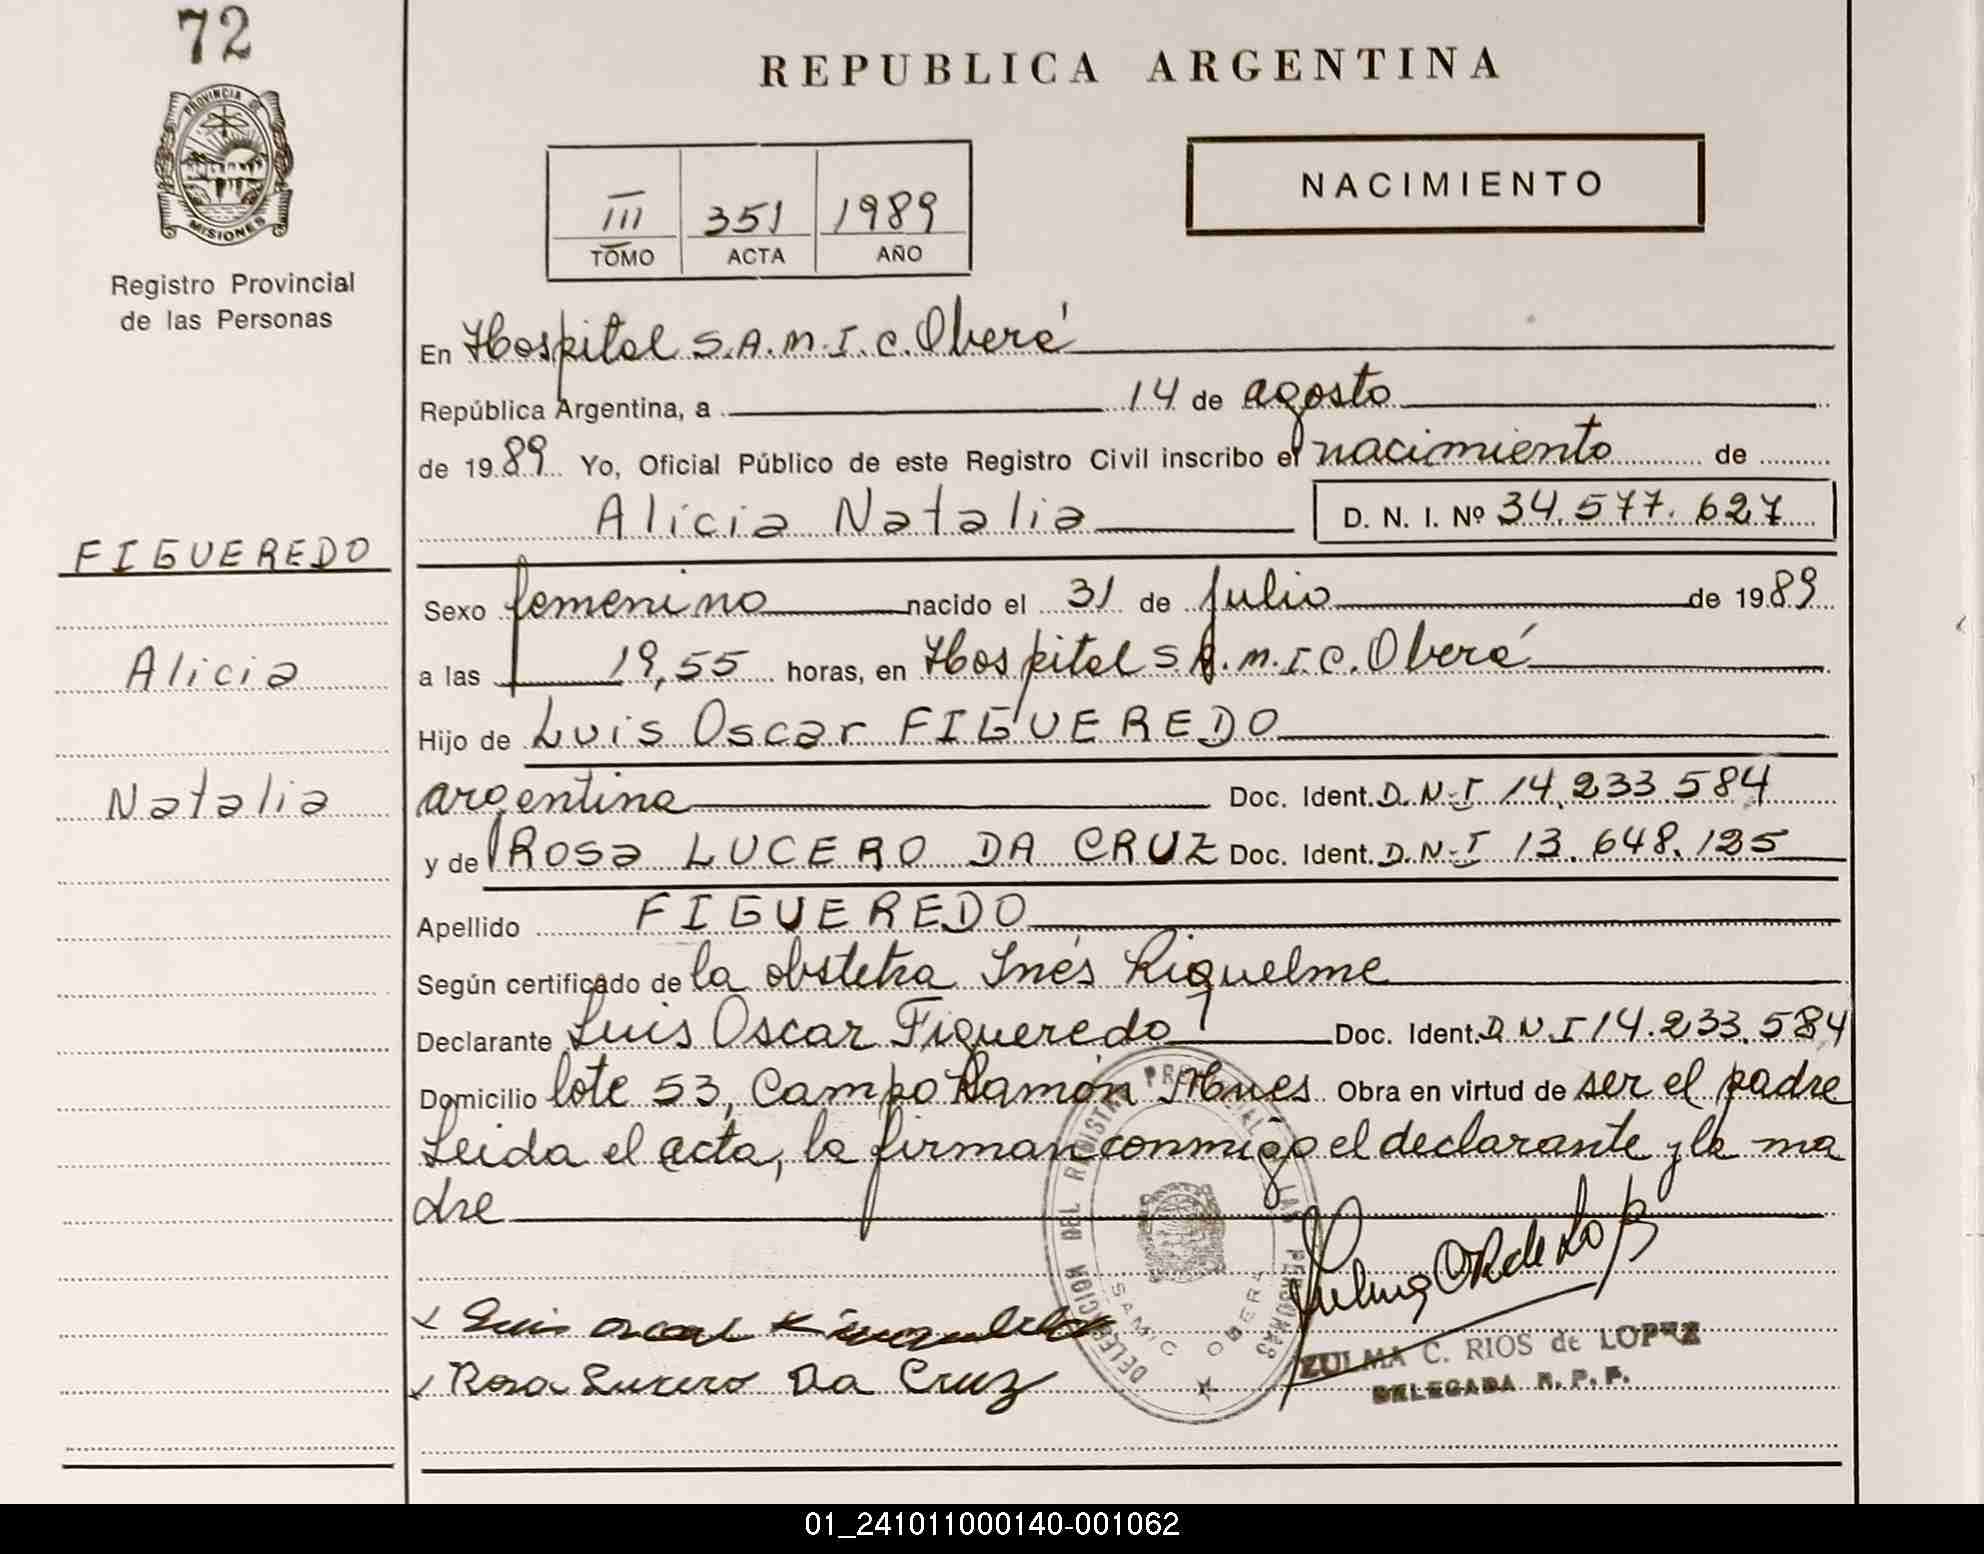 72
PROVINCIA DE
MISIONES
Registro Provincial
de las Personas
FIGUEREDO
Alicia
Natalia
REPUBLICA ARGENTINA
III 351 1989
TOMO ACTA AÑO
NACIMIENTO
En Hospital S.A.M.I.C. Oberá
República Argentina, a 14 de agosto
de 1989 Yo, Oficial Público de este Registro Civil inscribo el nacimiento de
Alicia Natalia D. N. I. Nº 34.577.627
Sexo femenino nacido el 31 de Julio de 1989
a las 19,55 horas, en Hospital S.A.M.I.C. Oberá
Hijo de Luis Oscar FIGUEREDO
argentina Doc. Ident. D.N.I 14.233.584
y de Rosa LUCERO DA CRUZ Doc. Ident. D.N.I 13.648.125
Apellido FIGUEREDO
Según certificado de la obstetra Inés Riquelme
Declarante Luis Oscar Figueredo Doc. Ident. D.N.I 14.233.584
Domicilio lote 53, Campo Ramón Mnes Obra en virtud de ser el padre
Leida el acta, la firman conmigo el declarante y la ma
dre
DELEGACION DEL REGISTRO PROVINCIAL DE LAS PERSONAS
SAMIC OBERA
Luis Oscar Figueredo
Rosa Lucero Da Cruz
ZULMA C. RIOS de LOPEZ
DELEGADA R. P. P.
01_241011000140-001062